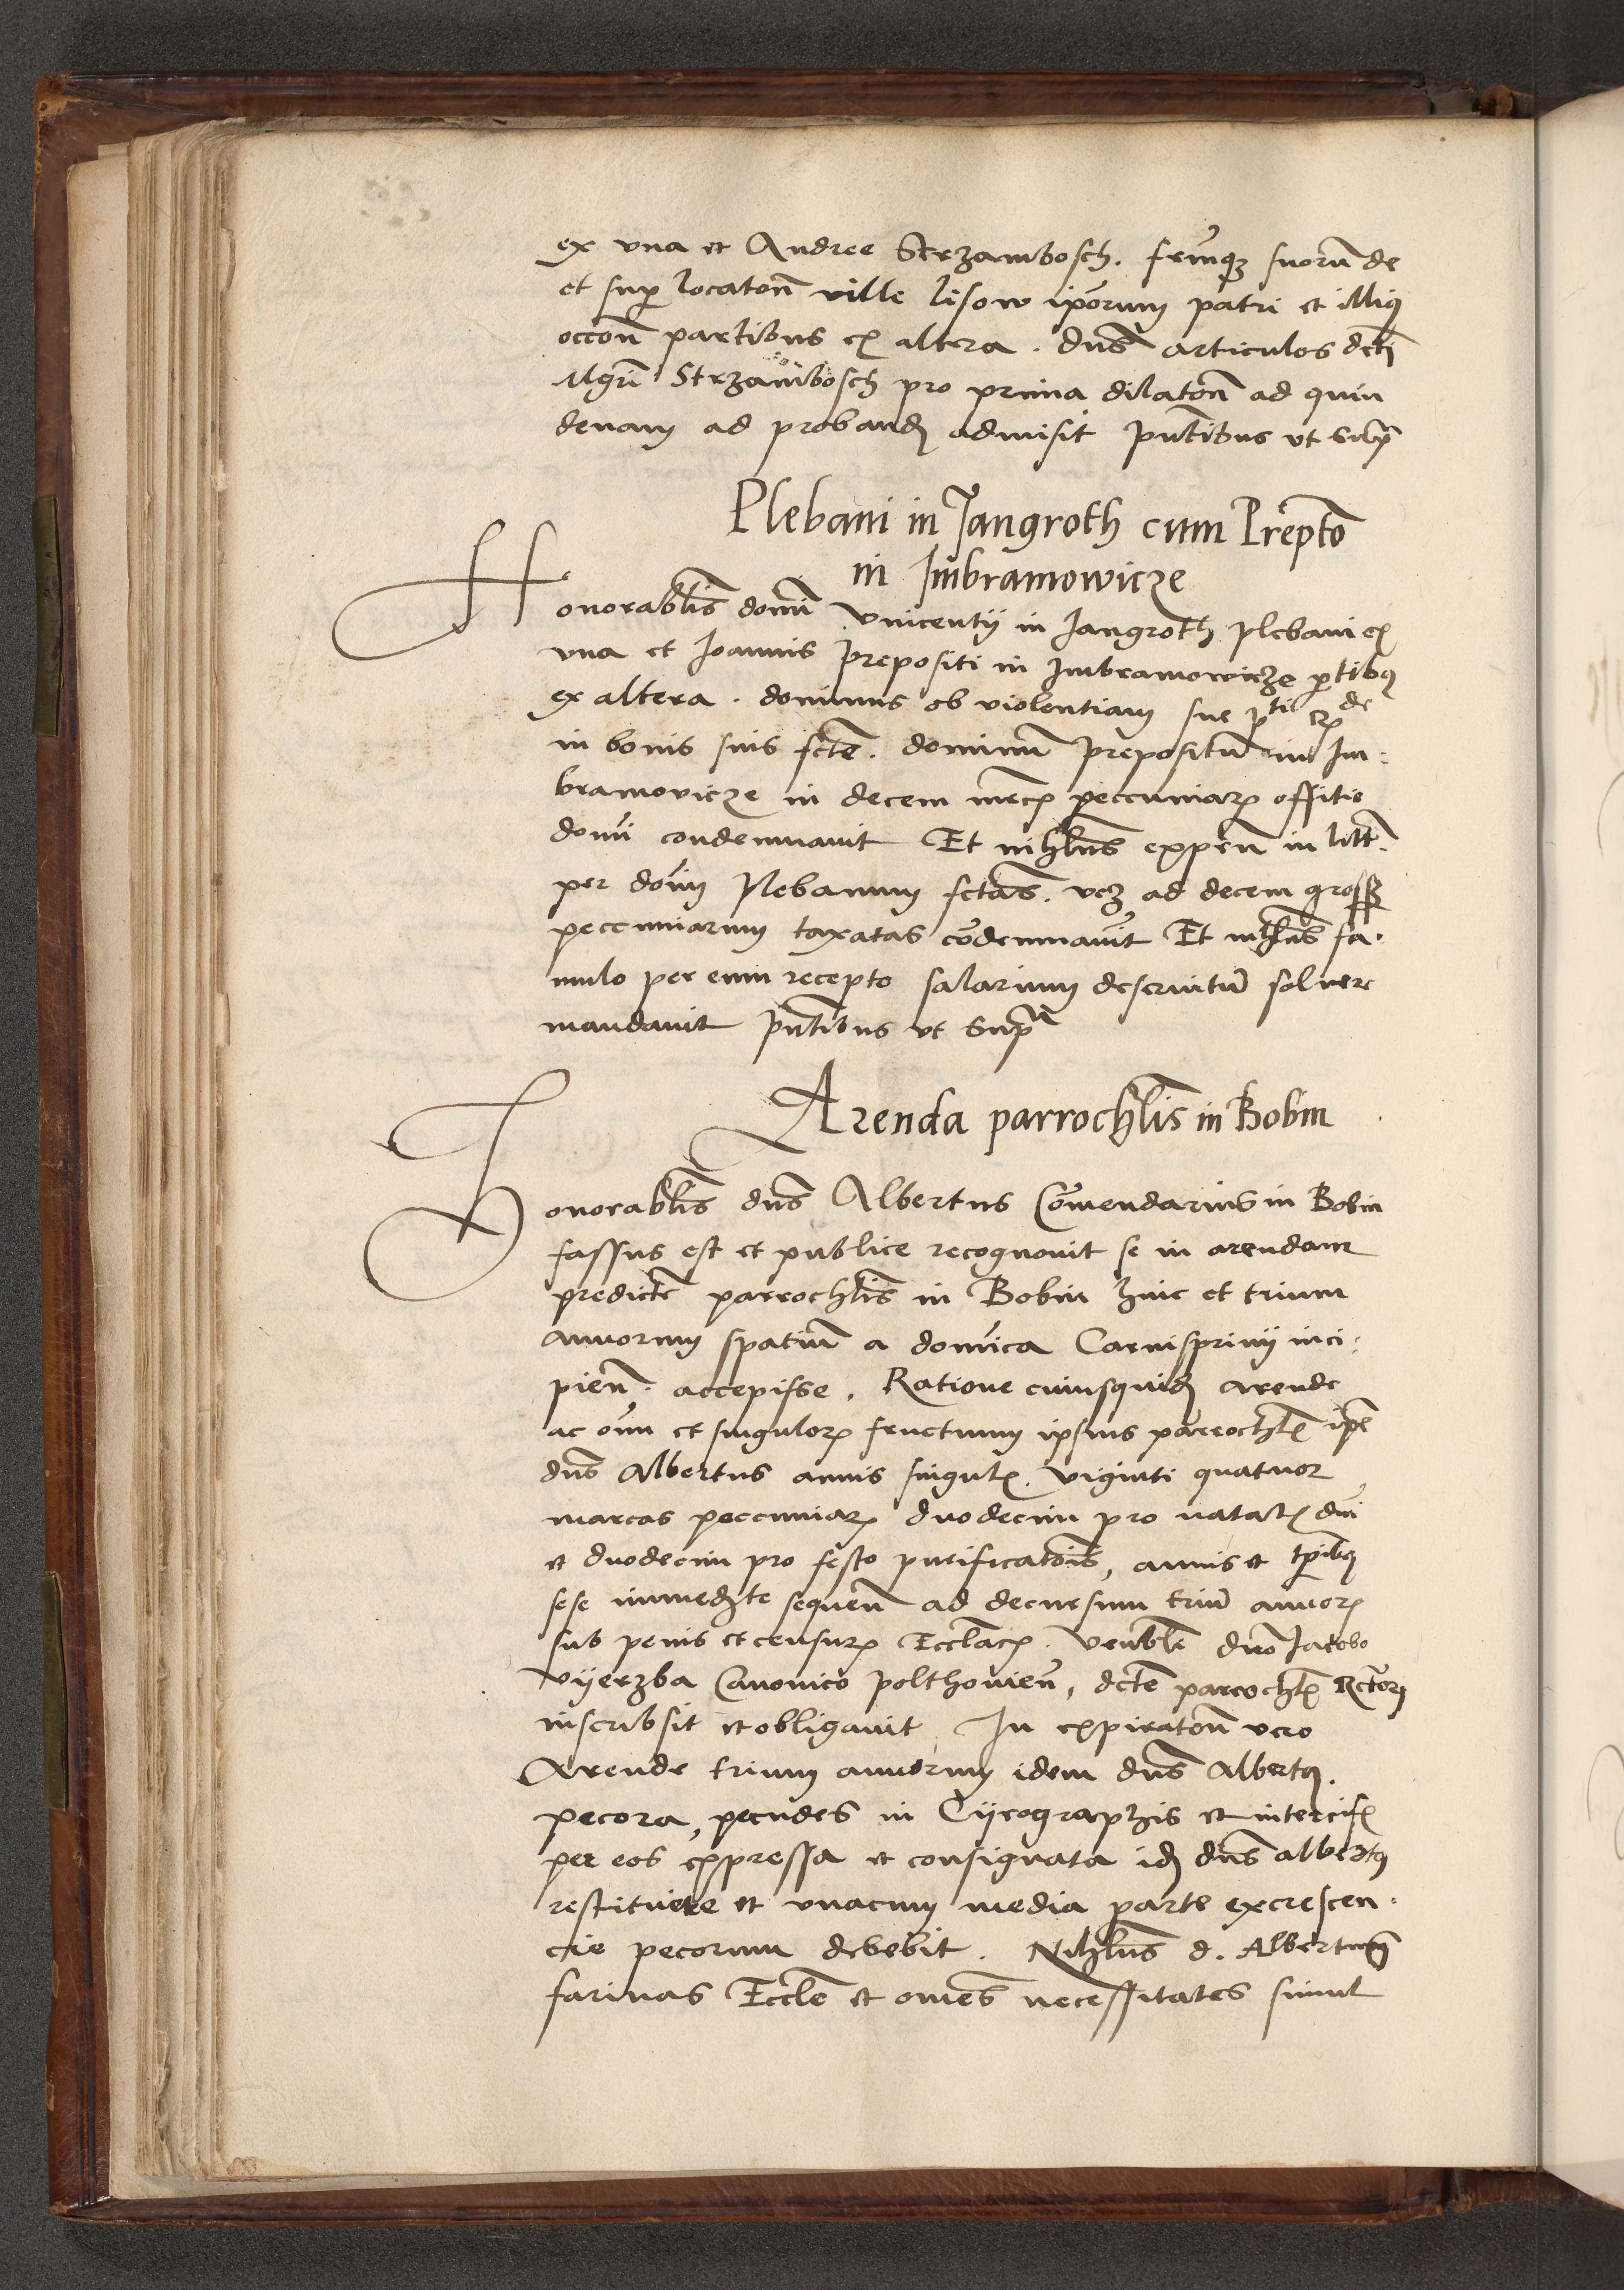 ex vna et Andree Strzambosch. frūnqꝫ suorū de
et sup locatoēn ville Lisow ipōrum patri et illiꝯ
occoēn partibus ex altera. dn̄s articulos dcti
Mgrī Strzambosch pro prima dilatoēn ad quin
denam ad proband admisit pn̄tibus vt supra
Plebani in Jangroth cum Prepto
in Imbramowicze
Honorabilis domi Vincentij in Jangroth plebani ex
vna et Joannis prepositi in Imbramowicze ptibꝯ
ex altera. dominus ob violentiam sue pti
in bonis suis fcte. dominū prepositū in Im:
bramovicze in decem mrcꝝ peccuniaꝝ offitio
domī condemnauit Et nihlns expen̄ in litt.
per domī plebanum fctas. vcꝫ ad decem gross
peccuniarum taxatas cōdemnauit Et nihlns fa.
mulo per eum recepto salarium deseruitū soluere
mandauit pn̄tibus vt supra
Arenda parrochlis in Bobin
Honorablis dn̄s Albertus Cōmendarius in Bobin
fassus est et publice recognouit se in arendam
predicte parrochlis in Bobin hinc et trium
annorum spatiū a domīca Carnispriuij inci:
pien̄. accepisse. Ratione cuiusquid arende
ac oīm et singuloꝝ fructuum ipsius parrochlꝫ ipe
dn̄s Albertus annis singulꝫ. viginti quatuor
marcas peccuniaꝝ duodecim pro natalꝫ dni
et duodecim pro festo purificatois, annis et tpibꝯ
sese immedte sequen̄ ad decursum triū annoꝝ
sub penis et censuꝝ Ecclacꝝ. Venbli dn̄o Jacobo
Vyerzba Canonico polthouien̄, dcte parrochlꝫ Rctori
inscribsit et obligauit. In expiratoēn vero
Arende trium annorum idem dn̄s Albertꝯ.
pecora, pecudes in Cyrographis et intercisꝫ
per eos expressa et consignata id dn̄s albertꝯ
restituere et vnacum media parte excrescen:
cie pecorum debebit. Nihlns d. Albertum
farinas Eccle et omēs necessitates simul